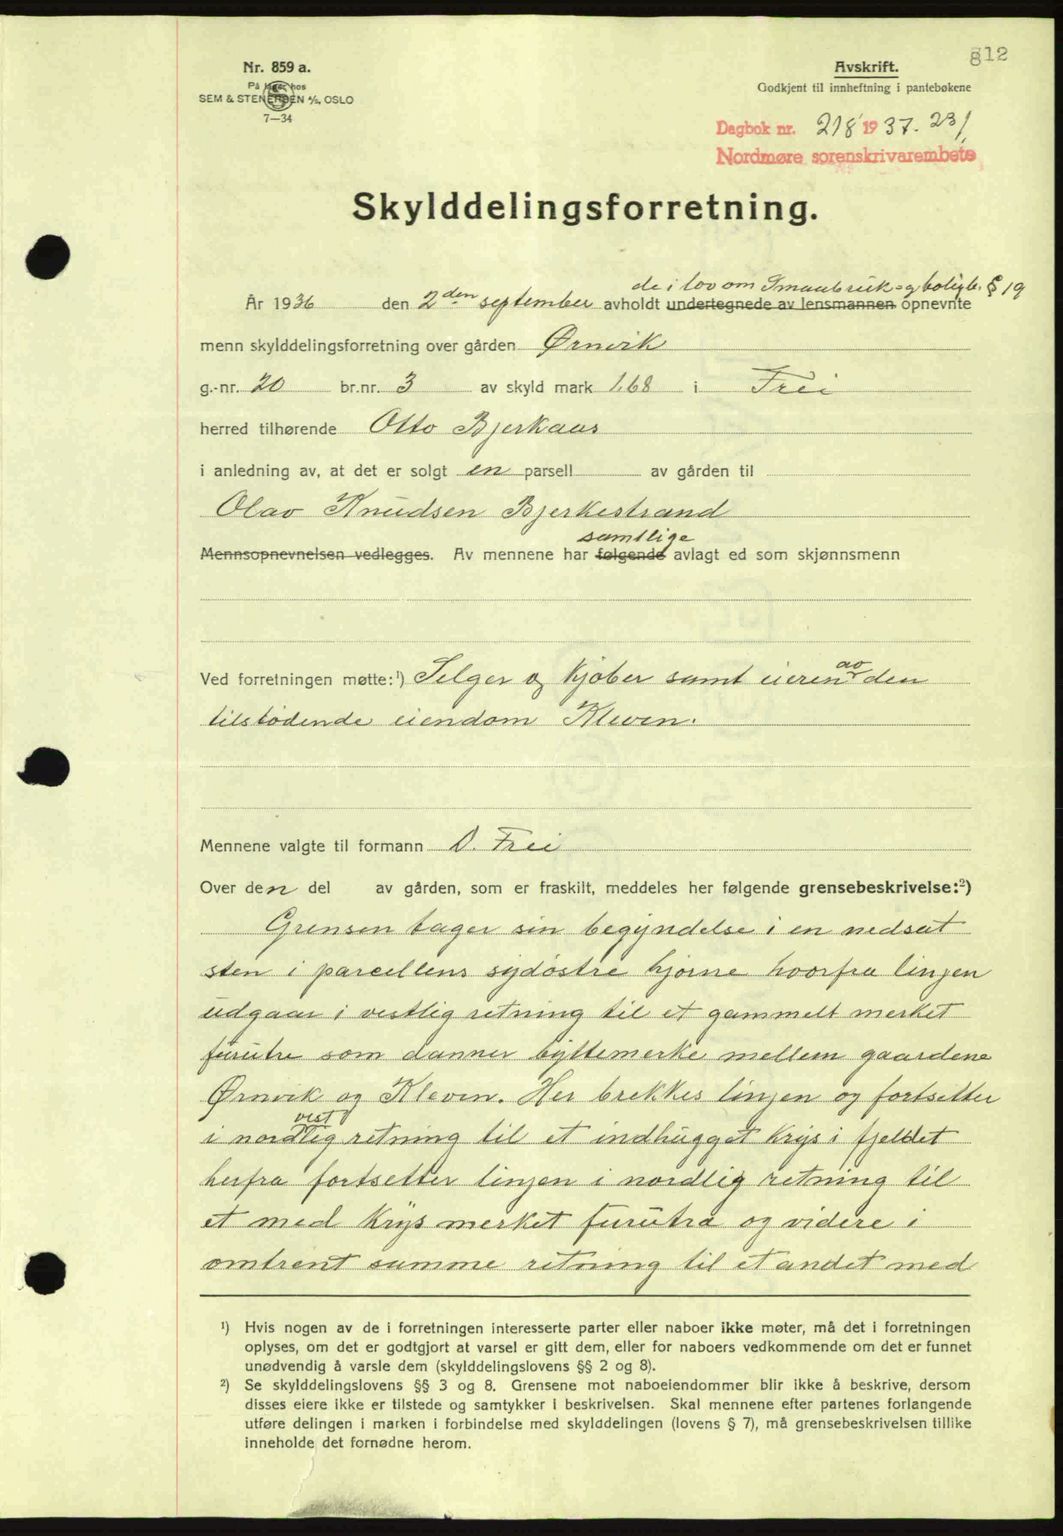 812
Nr. 859 a.
På lager hos
SEM & STENERSEN A/S, OSLO
7—34
Avskrift.
Godkjent til innheftning i pantebøkene
Dagbok nr. 218 1937. 23/1
Nordmøre sorenskrivarembete
Skylddelingsforretning.
de i lov om Smaabruk og boligl. § 19
År 1936 den 2den september avholdt undertegnede av lensmannen opnevnte
menn skylddelingsforretning over gården Ørnvik
g.-nr. 20 br.nr. 3 av skyld mark 1.68 i Frei
herred tilhørende Otto Bjerkaas
i anledning av, at det er solgt en parsell av gården til
Olav Knudsen Bjerkestrand
samtlige
Mennsopnevnelsen vedlegges. Av mennene har følgende avlagt ed som skjønnsmenn
av
Ved forretningen møtte:¹) Selger og kjøber samt eieren den
tilstødende eiendom Kleven.
Mennene valgte til formann O. Frei
Over den del av gården, som er fraskilt, meddeles her følgende grensebeskrivelse:²)
Grensen tager sin begyndelse i en nedsat
sten i parcellens sydøstre hjørne hvorfra linjen
udgaar i vestlig retning til et gammelt merket
furutre som danner byttemerke mellem gaardene
Ørnvik og Kleven. Her brekkes linjen og fortsetter
vest
i nordlig retning til et indhugget krys i fjeldet
herfra fortsetter linjen i nordlig retning til
et med krys merket furutræ og videre i
omtrent samme retning til et andet med
¹) Hvis nogen av de i forretningen interesserte parter eller naboer ikke møter, må det i forretningen
oplyses, om det er godtgjort at varsel er gitt dem, eller for naboers vedkommende om det er funnet
unødvendig å varsle dem (skylddelingslovens §§ 2 og 8).
²) Se skylddelingslovens §§ 3 og 8. Grensene mot naboeiendommer blir ikke å beskrive, dersom
disses eiere ikke er tilstede og samtykker i beskrivelsen. Skal mennene efter partenes forlangende
utføre delingen i marken i forbindelse med skylddelingen (lovens § 7), må grensebeskrivelsen tillike
inneholde det fornødne herom.